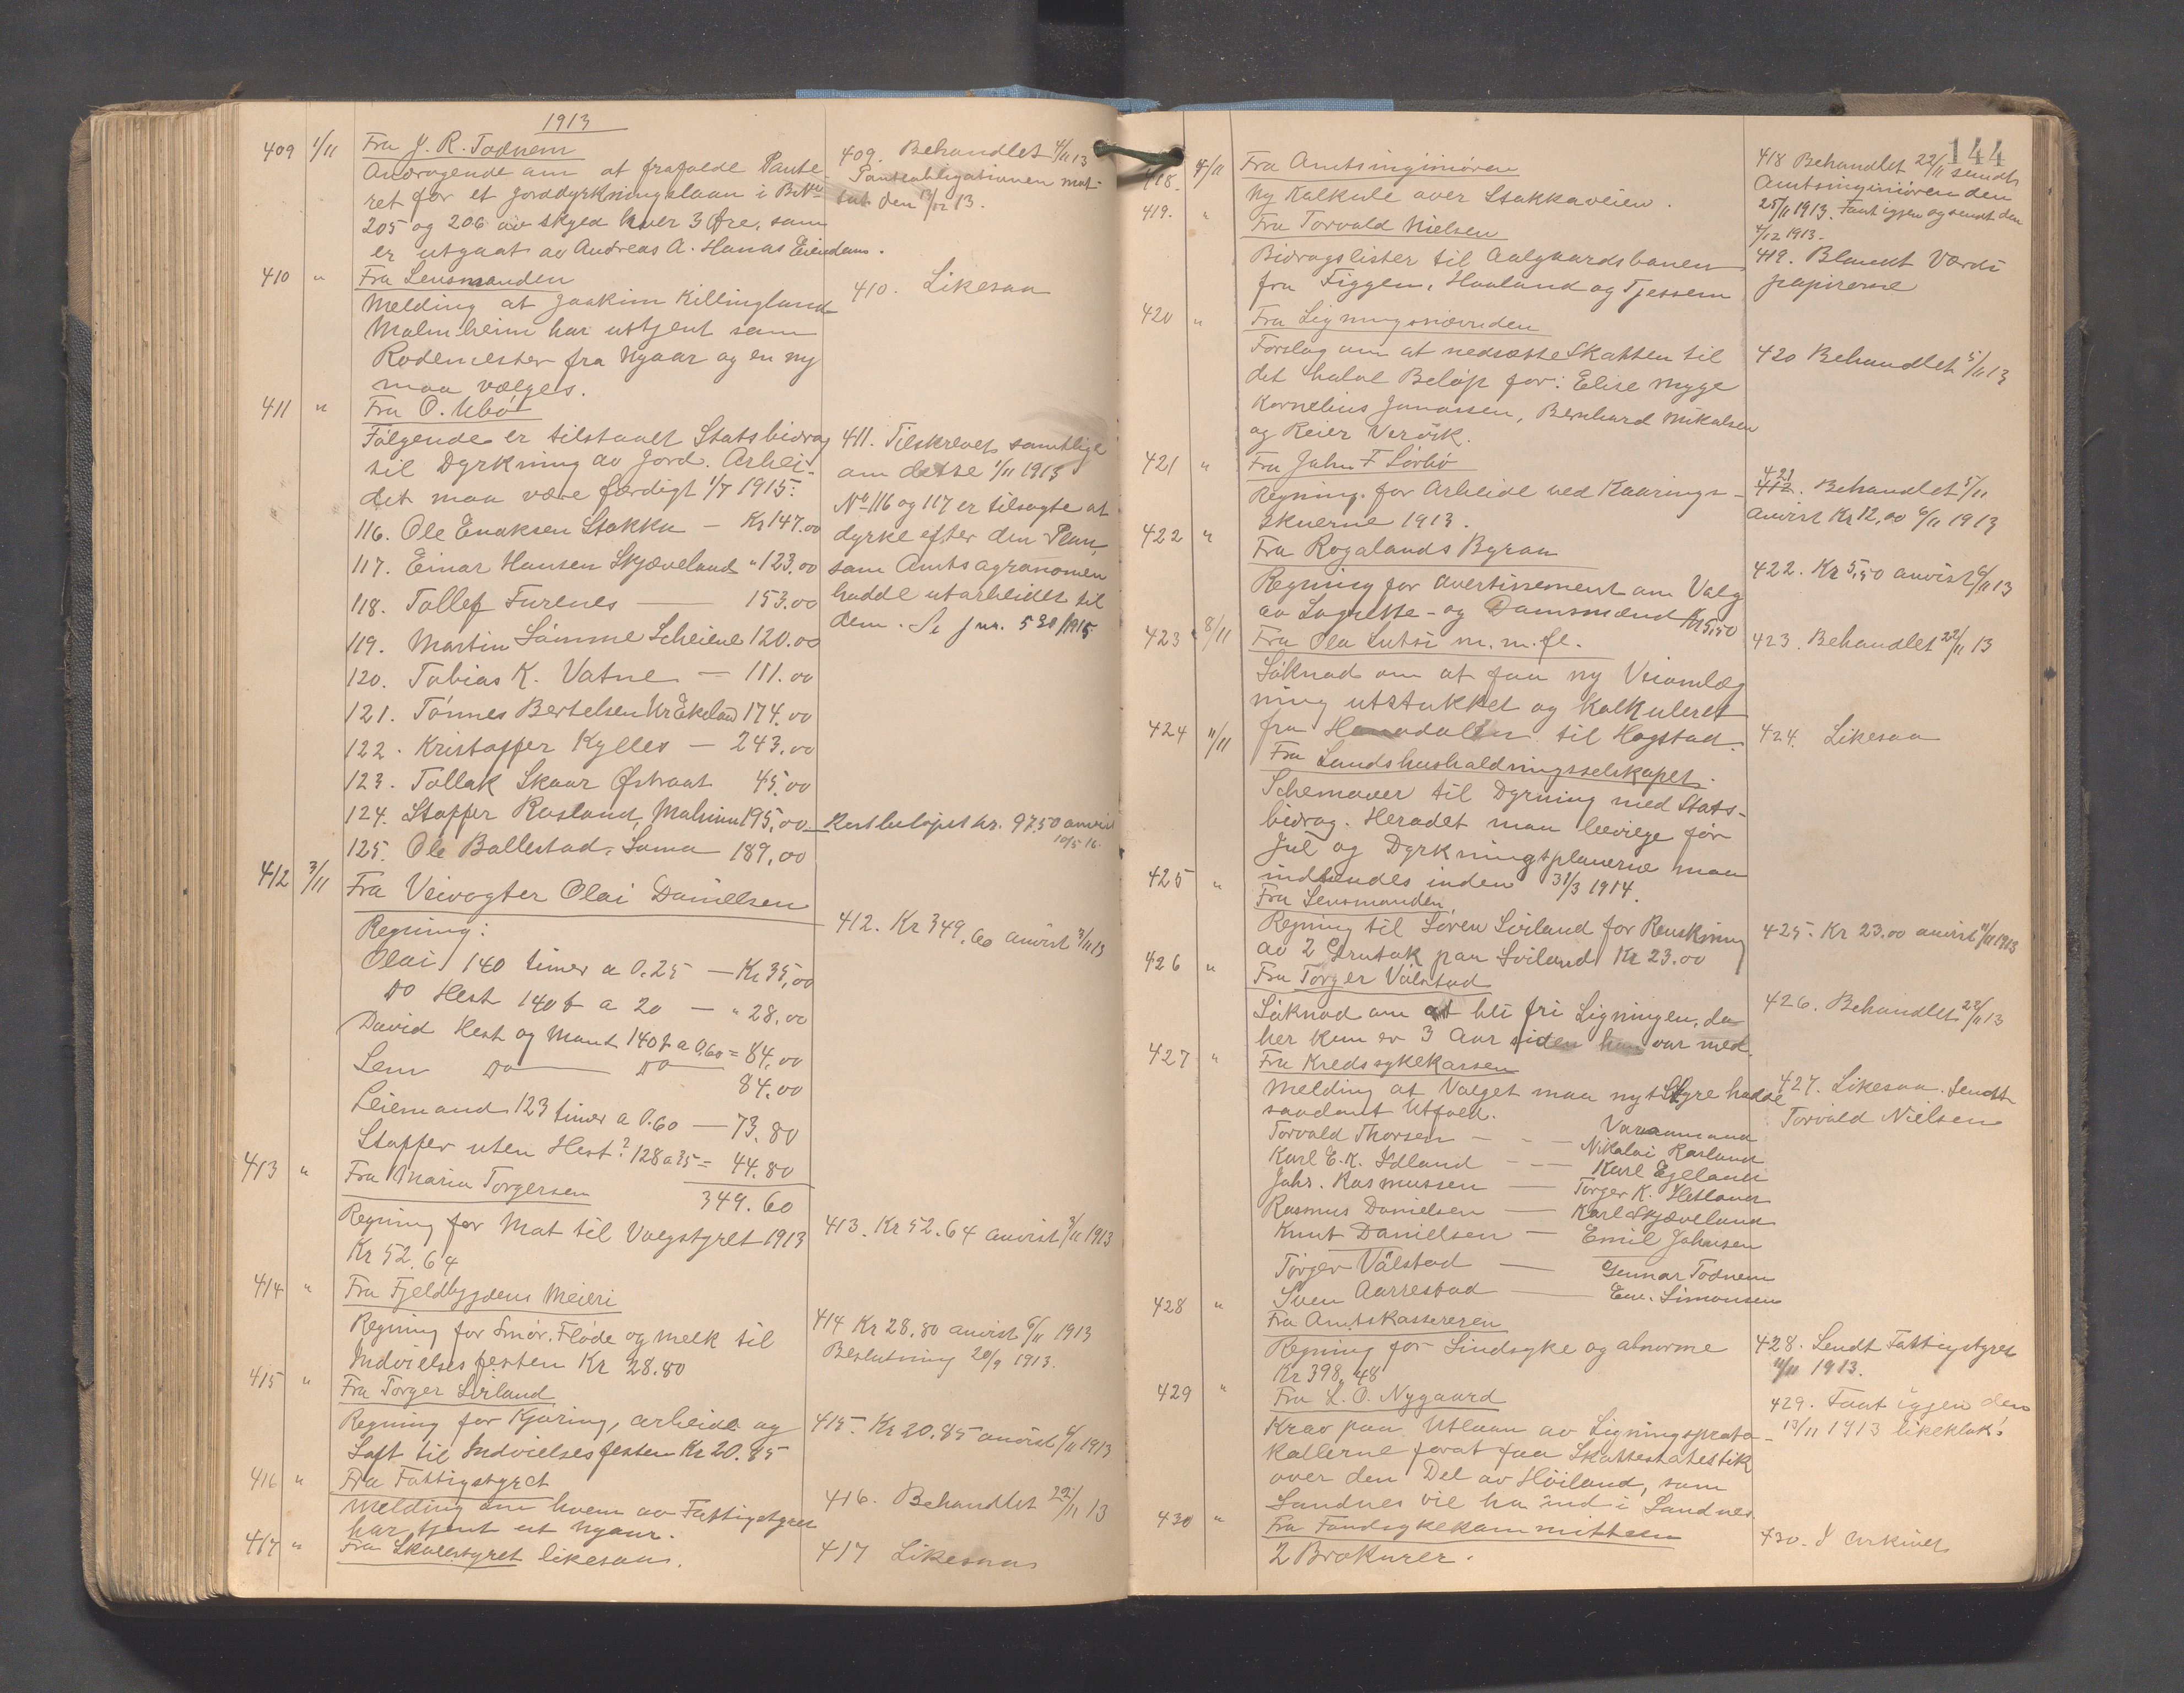 1913
409 1/11 Fra J. R. Todnem
Andragende om at frafalde Pante-
ret for et Jorddyrkningslaan i B.No
205 og 206 av skyld hver 3 Øre, som
er utgaat av Andreas A. Hanas Eiendom.
409. Behandlet 4/11 13
Panteobligationen mot-
tat den 13/12 13.
410 " Fra Lensmanden
Melding at Joakim Killingland
Malmheim har uttjent som
Rodemester fra Nyaar og en ny
maa vælges.
410. Likesaa
411 " Fra O. Ubø
Følgende er tilstaaet Statsbidrag
til Dyrkning av Jord. Arbei-
det maa være færdigt 1/7 1915:
116. Ole Enoksen Stokka — Kr 147.00
117. Einar Hansen Skjæveland " 123.00
118. Tollef Furenes — 153.00
119. Martin Sømme Scheiene 120.00
120. Tobias K. Vatne — 111.00
121. Tønnes Bertelsen Kr Ekeland 174.00
122. Kristoffer Kylles — 243.00
123. Tollak Skaar Østraat 45.00
124. Stoffer Rosland, Malmim 195,00
125. Ole Bollestad, Soma 189,00
411. Tilskrevet samtlige
om dette 1/11 1913
No 116 og 117 er tilsagte at
dyrke efter den Plan,
som Amtsagronomen
hadde utarbeidet til
dem. Se Jnr. 530/1915
Restbeløpet kr. 97,50 anvist
10/5 16.
412 3/11 Fra Veivogter Olai Danielsen
Regning:
Olai 140 timer a 0.25 — Kr 35,00
Do Hest 140 t a 20 — " 28,00
David Hest og Mand 140 t a 0,60 = 84,00
Sem Do — Do — 84.00
Leiemand 123 timer a 0.60 — 73.80
Stoffer uten Hest? 128 a 35 = 44.80
349.60
412. Kr 349,60 anvist 3/11 13
413 " Fra Maria Torgersen
Regning for Mat til Valgstyret 1913
Kr 52.64
413. Kr 52.64 anvist 3/11 1913
414 " Fra Fjeldbygdens Meieri
Regning for Smør, Fløde og melk til
Indvielsesfesten Kr 28.80
414 Kr 28.80 anvist 6/11 1913
Beslutning 20/9 1913.
415 " Fra Torger Sviland
Regning for Kjøring, arbeide og
Saft til Indvielsesfesten Kr 20.85
415. Kr 20.85 anvist 6/11 1913
416 " Fra Fattigstyret
Melding om hvem av Fattigstyret
har tjent ut Nyaar.
416. Behandlet 22/11 13
417 " Fra Skolestyret likesaa.
417 Likesaa
144
418. 4/11 Fra Amtsingeniøren
Ny Kalkule over Stokkaveien.
418 Behandlet 22/11 sendt
Amtsingeniøren den
25/11 1913. Fant igjen og sendt den
4/12 1913.
419. " Fra Torvald Nielsen
Bidragslister til Aalgaardsbanen
fra Figgen, Hoaland og Tjessem
419. Blandt Værdi
papirerne
420 " Fra Ligningsnævnden
Forslag om at nedsætte Skatten til
det halve Beløp for: Elise Myge
Kornelius Jonassen, Bernhard Mikalsen
og Reier Vervik.
420 Behandlet 5/11 13
421 " Fra John F Sørbø
Regning for Arbeide ved Kaarings-
skuerne 1913.
421
412. Behandlet 5/11
Anvist Kr 12,00 6/11 1913
422 " Fra Rogalands Byraa
Regning for Avertissement om Valg
av Lagrette- og Domsmænd Kr 5,50
422. Kr 5,50 anvist 6/11 13
423 8/11 Fra Ola Lutsi m. m. fl.
Søknad om at faa ny Veiomlæg
ning utstukket og Kalkuleret
fra til Hogstad.
423. Behandlet 22/11 13
424 11/11 Fra Landshusholdningsselskapet.
Schemaer til Dyrning med Stats-
bidrag. Heradet maa bevilge før
Jul og Dyrkningsplanerne maa
indsendes inden 31/3 1914.
424. Likesaa
425 " Fra Lensmanden.
Regning til Søren Sviland for Renskning
av 2 Grutak paa Sviland Kr 23.00
425. Kr 23.00 anvist 11/11 1913
426 " Fra Torger Vølstad
Søknad om at bli fri Ligningen, da
her kun er 3 Aar siden han var med.
426. Behandlet 22/11 13
427 " Fra Kredssykekassen
Melding at Valget maa nyt Styre hadde
saadant Utfald.
Varamænd
Torvald Thorsen — Nikolai Rosland
Karl E. K. Idland — Karl Egeland
Johs. Rasmussen — Torger K. Hetland
Rasmus Danielsen — Karl Skjæveland
Knut Danielsen — Emil Johnsen
Torger Vølstad — Gunnar Todnem
Sven Aarrestad — Em. Simonsen
427. Likesaa. Sendt
Torvald Nielsen
428 " Fra Amtskassereren
Regning for Sindsyke og abnorme
Kr 398,48
428. Sendt Fattigstyret
11/11 1913.
429 " Fra L. O. Nygaard
Krav paa Utlaan av Ligningsproto-
kollerne forat faa Skattestatistik
over den Del av Høiland, som
Sandnes vil ha ind i Sandnes.
429. Faat igjen den
13/11 1913
430 " Fra
2 Brokurer.
430. I Arkivet